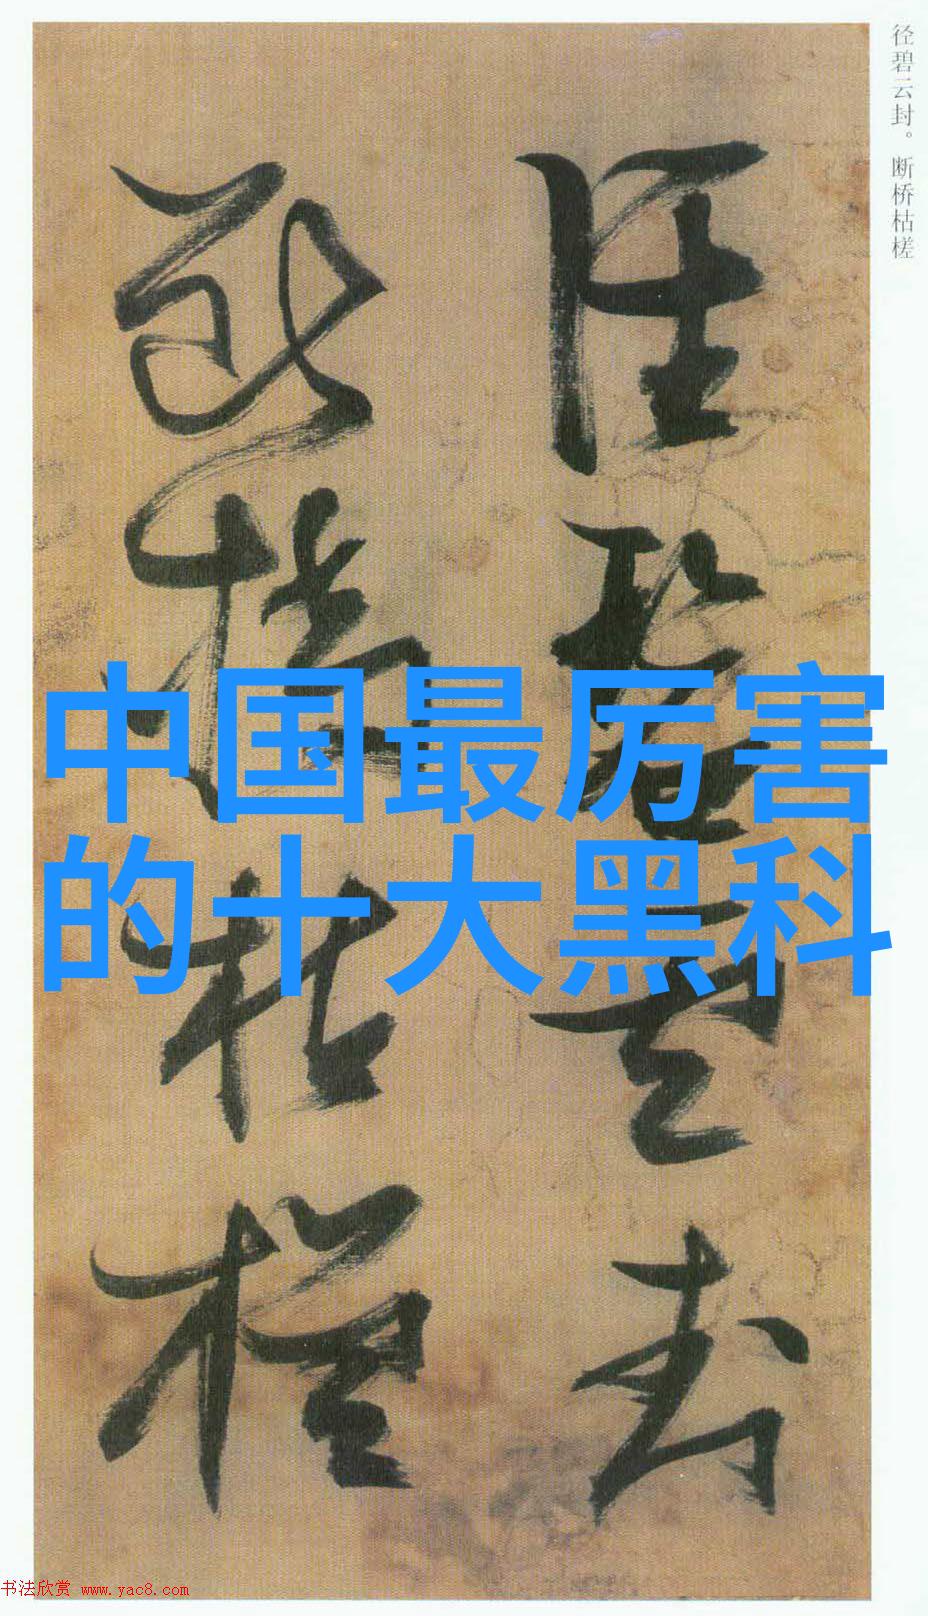 径碧云封。断桥枯槎
径碧云封
断桥枯槎
中国最厉害
的十大黑科
书法欣赏 www.yac8.com